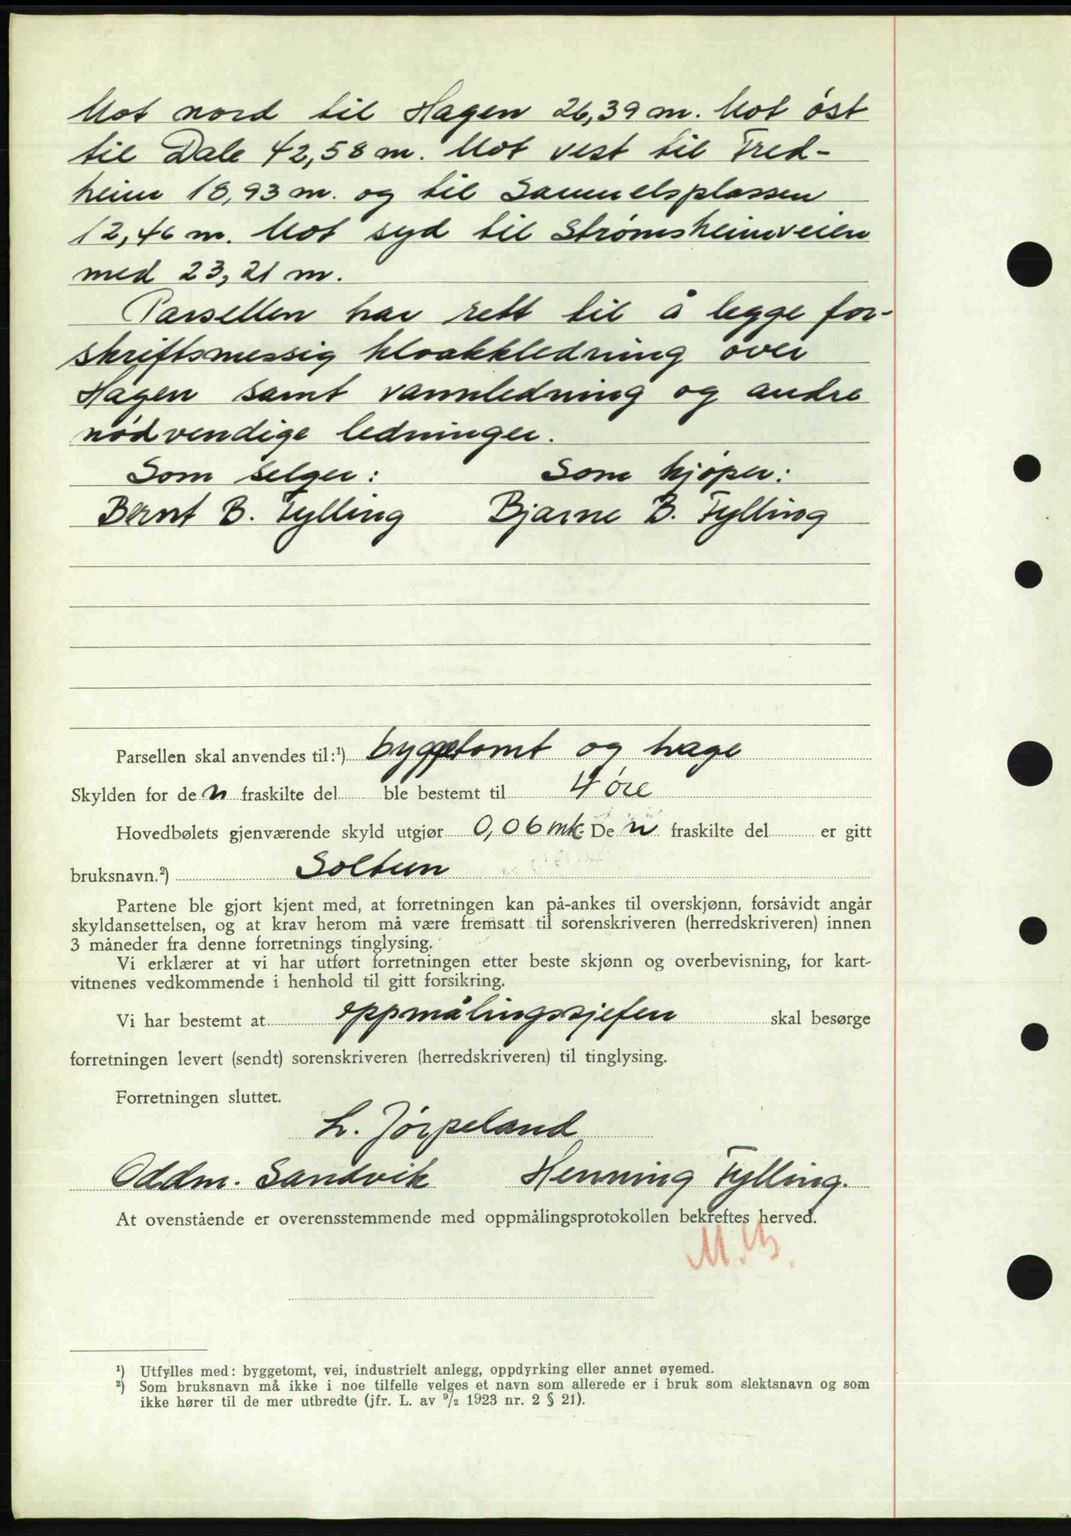 Mot nord til Hagen 26,39 m. Mot öst
til Dale 42,58 m. Mot vest til Fred-
heim 18,93 m. og til Samuelsplassen
12,46 m. Mot syd til Strømsheimveien
med 23,21 m.
Parsellen har rett til å legge for-
skriftsmessig kloakkledning over
Hagen samt vannledning og andre
nødvendige ledninger.
Som selger: Som kjøper:
Bernt B. Fylling Bjarne B. Fylling
Parsellen skal anvendes til:¹) byggetomt og hage
Skylden for de n fraskilte del ble bestemt til 4 øre
Hovedbølets gjenværende skyld utgjør 0,06 mk. De n fraskilte del er gitt
bruksnavn.²) Soltun
Partene ble gjort kjent med, at forretningen kan på-ankes til overskjønn, forsåvidt angår
skyldansettelsen, og at krav herom må være fremsatt til sorenskriveren (herredskriveren) innen
3 måneder fra denne forretnings tinglysing.
Vi erklærer at vi har utført forretningen etter beste skjønn og overbevisning, for kart-
vitnenes vedkommende i henhold til gitt forsikring.
Vi har bestemt at oppmålingssjefen skal besørge
forretningen levert (sendt) sorenskriveren (herredskriveren) til tinglysing.
Forretningen sluttet.
L. Jörpeland
Oddm. Sandvik Henning Fylling.
At ovenstående er overensstemmende med oppmålingsprotokollen bekreftes herved.
¹) Utfylles med: byggetomt, vei, industrielt anlegg, oppdyrking eller annet øyemed.
²) Som bruksnavn må ikke i noe tilfelle velges et navn som allerede er i bruk som slektsnavn og som
ikke hører til de mer utbredte (jfr. L. av ⁹/₂ 1923 nr. 2 § 21).